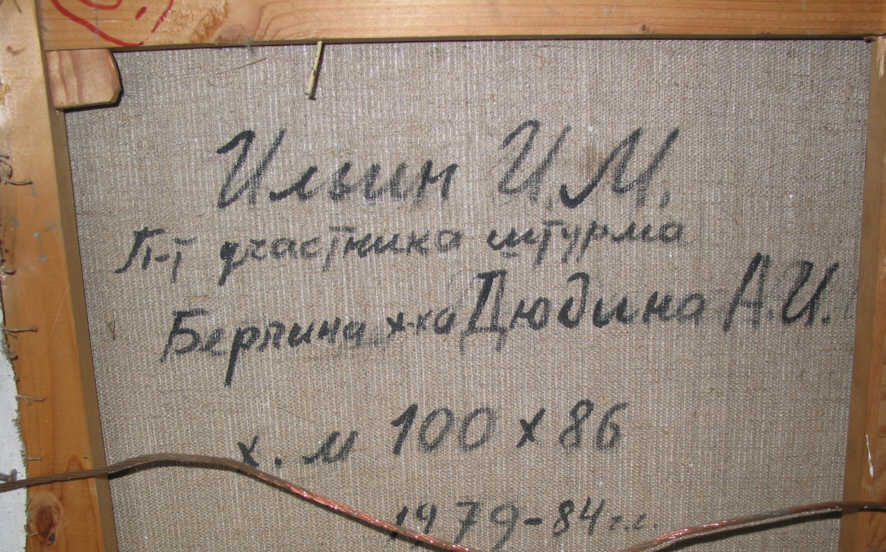 Ильин И.М.
П-т участника штурма
Берлина х-ка Дюдина А.И.
х. м 100 х 86
1979-84 г.г.